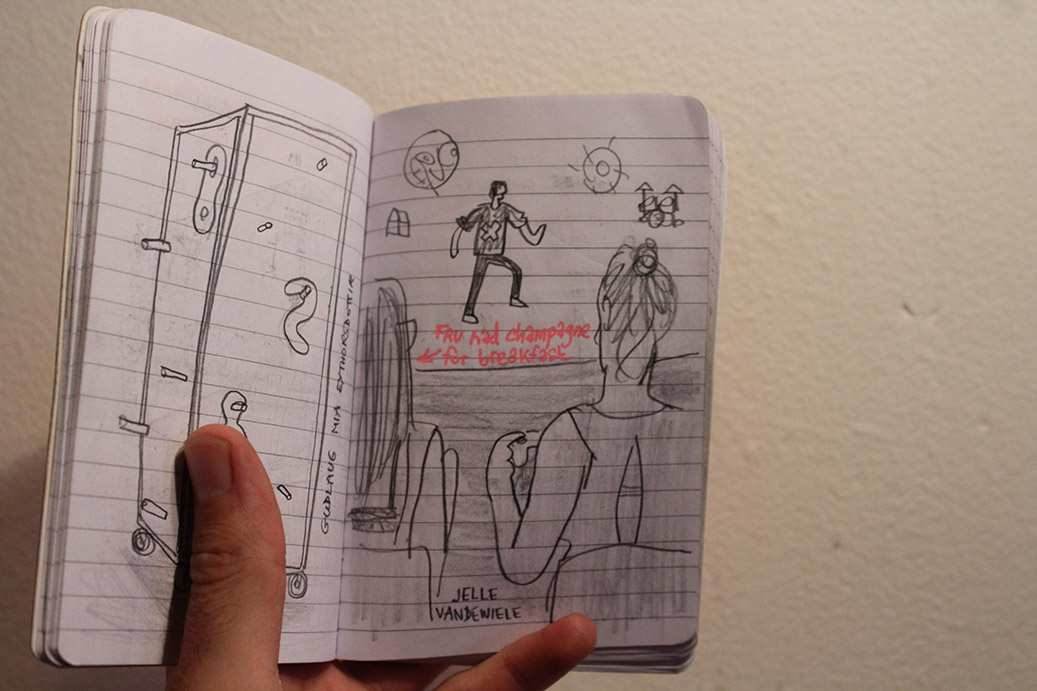 GUDLAUG MIA EYTHORSDOTTIR
FRU had champagne
for breakfast
JELLE
VANDEWIELE